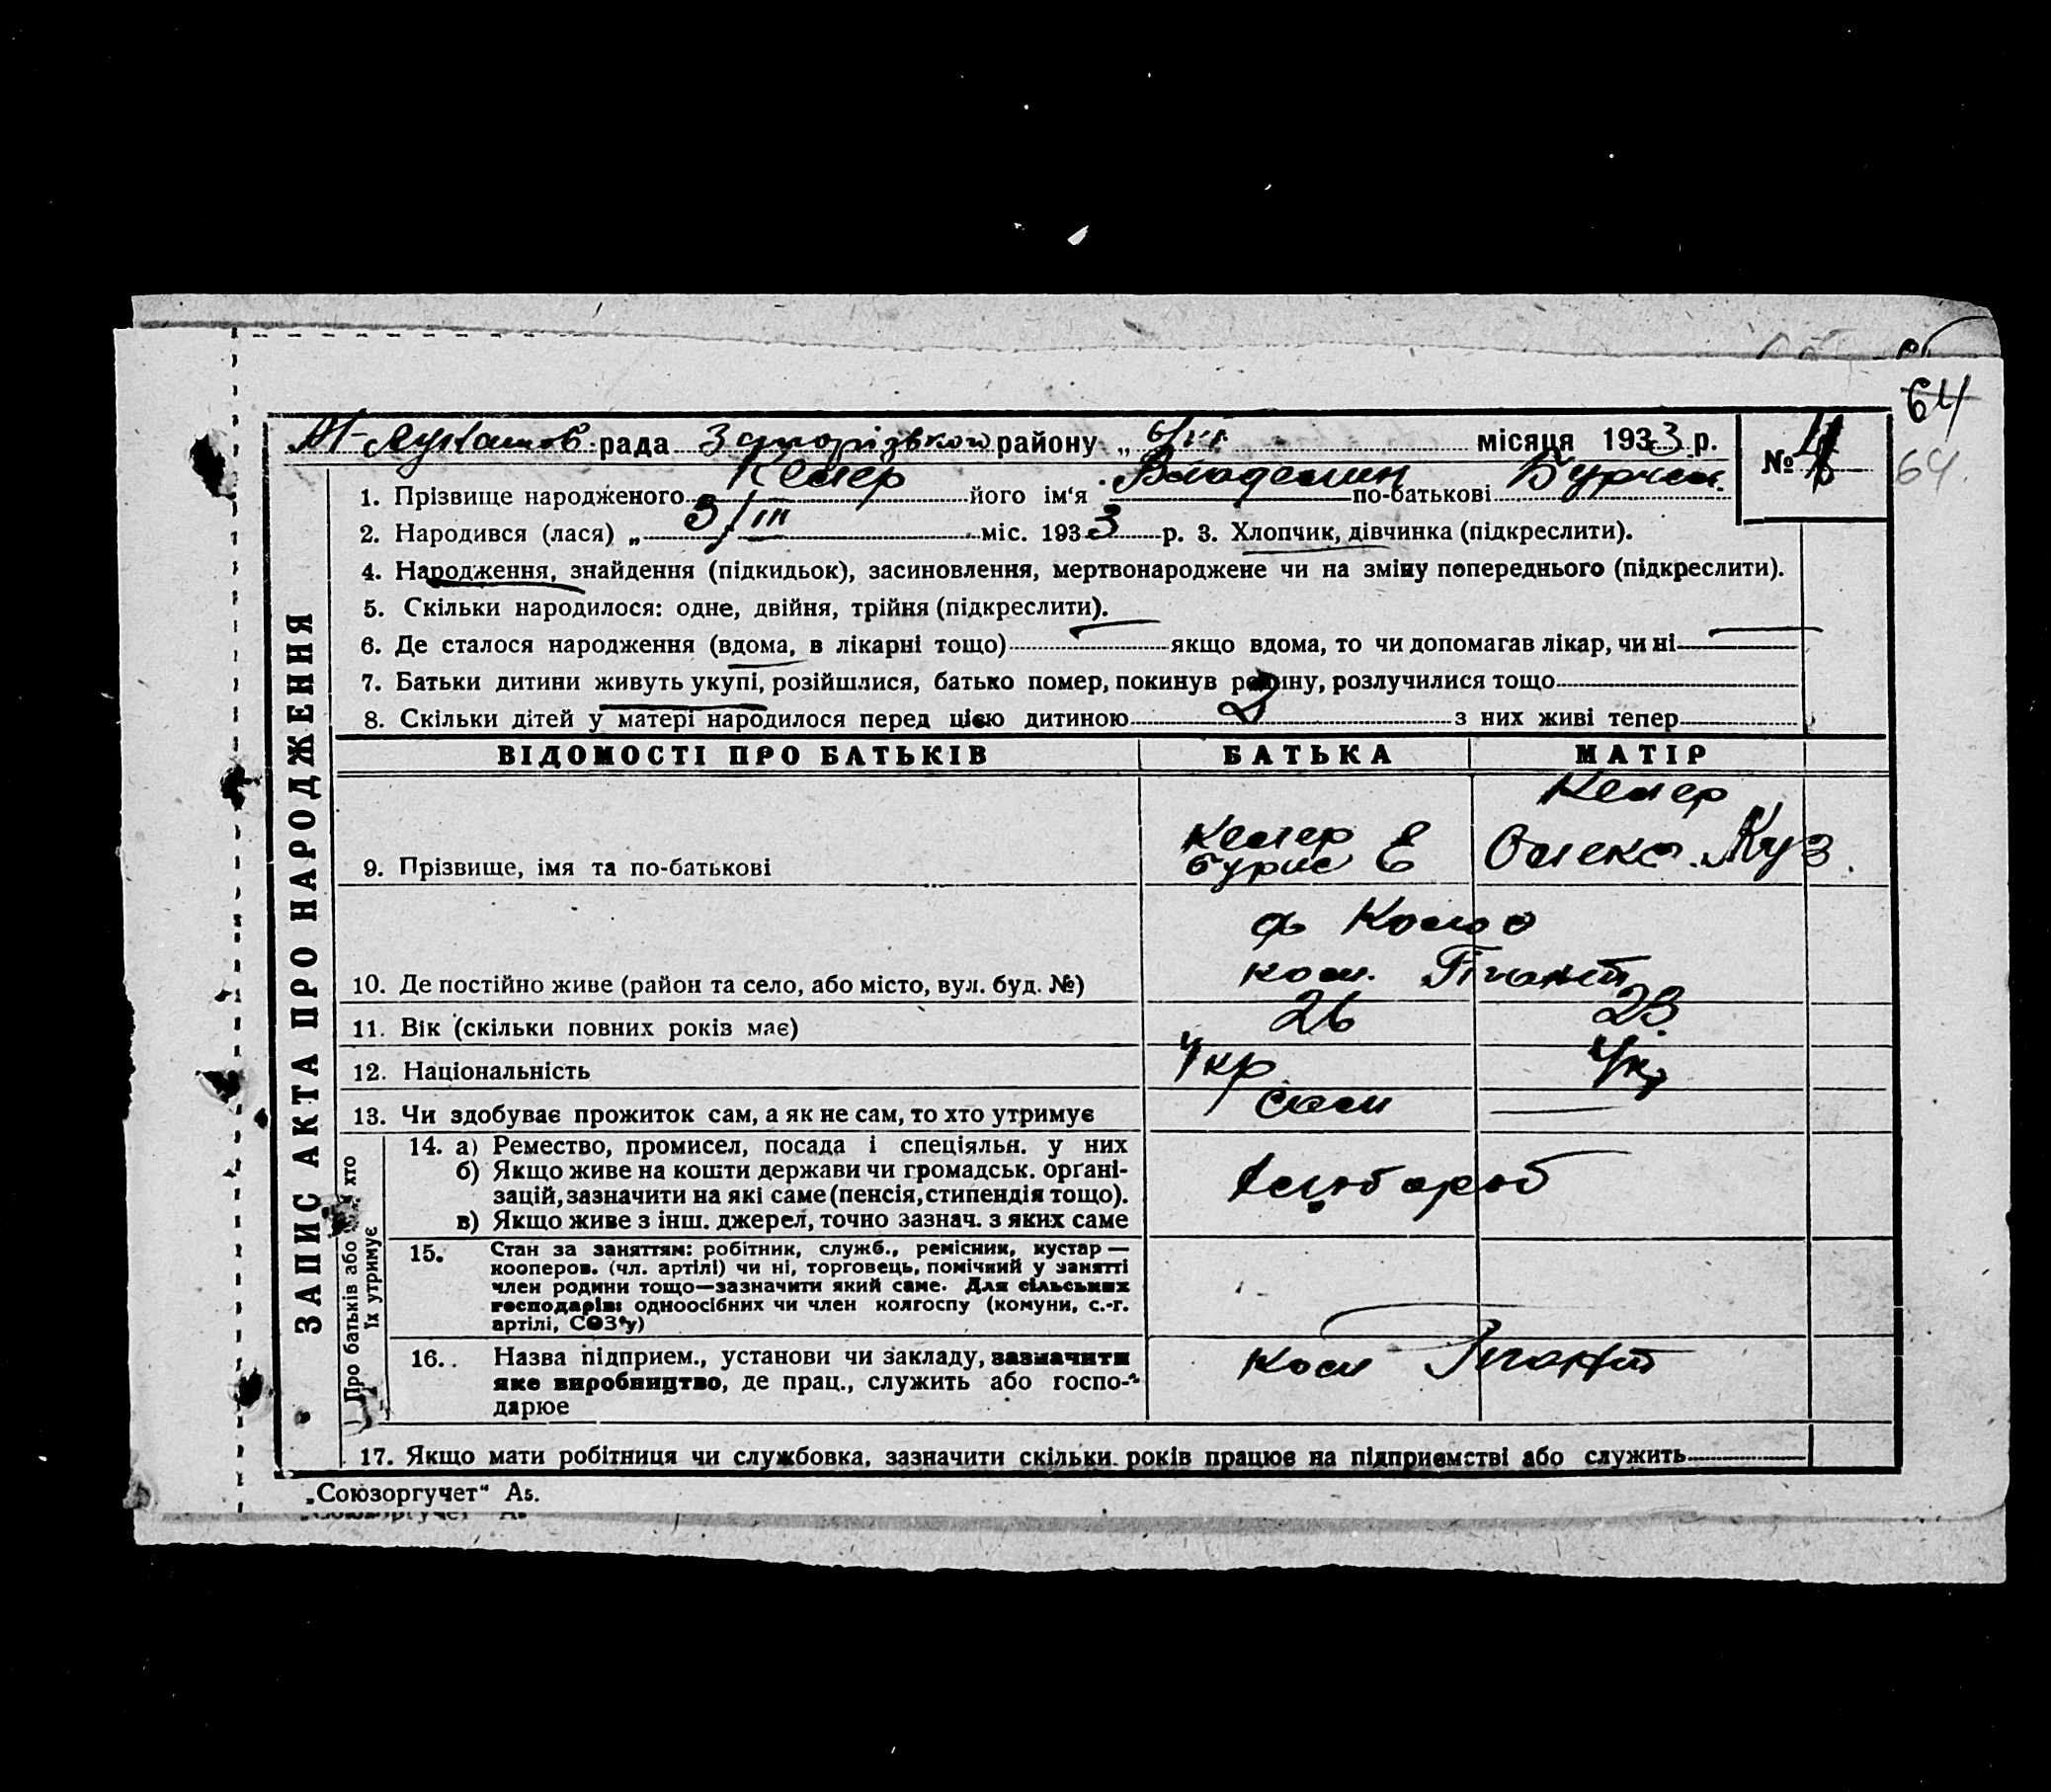 64
М-Лукашов рада Запорізькой району „ 6/VI місяця 1933 р. №
64
1. Прізвище народженого Келер його ім'я Владемир по-батькові
2. Народився (лася) „ 3/III міс. 1933 р. 3. Хлопчик, дівчинка (підкреслити).
4. Народження, знайдення (підкидьок), засиновлення, мертвонароджене чи на зміну попереднього (підкреслити).
5. Скільки народилося: одне, двійня, трійня (підкреслити).
6. Де сталося народження (вдома, в лікарні тощо) якщо вдома, то чи допомагав лікар, чи ні
7. Батьки дитини живуть укупі, розійшлися, батько помер, покинув родину, розлучилися тощо
8. Скільки дітей у матері народилося перед цією дитиною 2 з них живі тепер
ЗАПИС АКТА ПРО НАРОДЖЕННЯ
ВІДОМОСТІ ПРО БАТЬКІВ БАТЬКА МАТІР
Келер
Келер
9. Прізвище, імя та по-батькові Бурис Е Олекс. Куз.
10. Де постійно живе (район та село, або місто, вул. буд. №) Гігант
11. Вік (скільки повних років має) 26 23
12. Національність Укр Укр
13. Чи здобуває прожиток сам, а як не сам, то хто утримує сам
Про батьків або хто
їх утримує
14. а) Ремество, промисел, посада і спеціяльн. у них
б) Якщо живе на кошти держави чи громадськ. органі-
зацій, зазначити на які саме (пенсія, стипендія тощо).
в) Якщо живе з інш. джерел, точно зазнач. з яких саме
15. Стан за заняттям: робітник, служб., ремісник, кустар —
кооперов. (чл. артілі) чи ні, торговець, помічний у занятті
член родини тощо—зазначити який саме. Для сільських
господарів: одноосібних чи член колгоспу (комуни, с.-г.
артілі, СОЗ'у)
16. Назва підприєм., установи чи закладу, зазначити Гігант
яке виробництво, де прац., служить або госпо-
дарює
17. Якщо мати робітниця чи службовка, зазначити скільки років працює на підприємстві або служить
„Союзоргучет" А5.